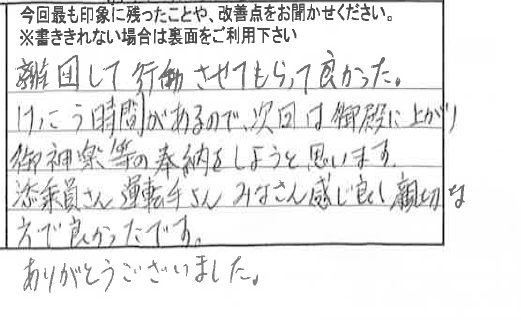 今回最も印象に残ったことや、改善点をお聞かせください。
※書ききれない場合は裏面をご利用下さい
離団して行動させてもらって良かった。
けっこう時間があるので、次回は御殿に上がり
御神楽等の奉納をしようと思います。
添乗員さん運転手さんみなさん感じ良く親切な
方で良かったです。
ありがとうございました。